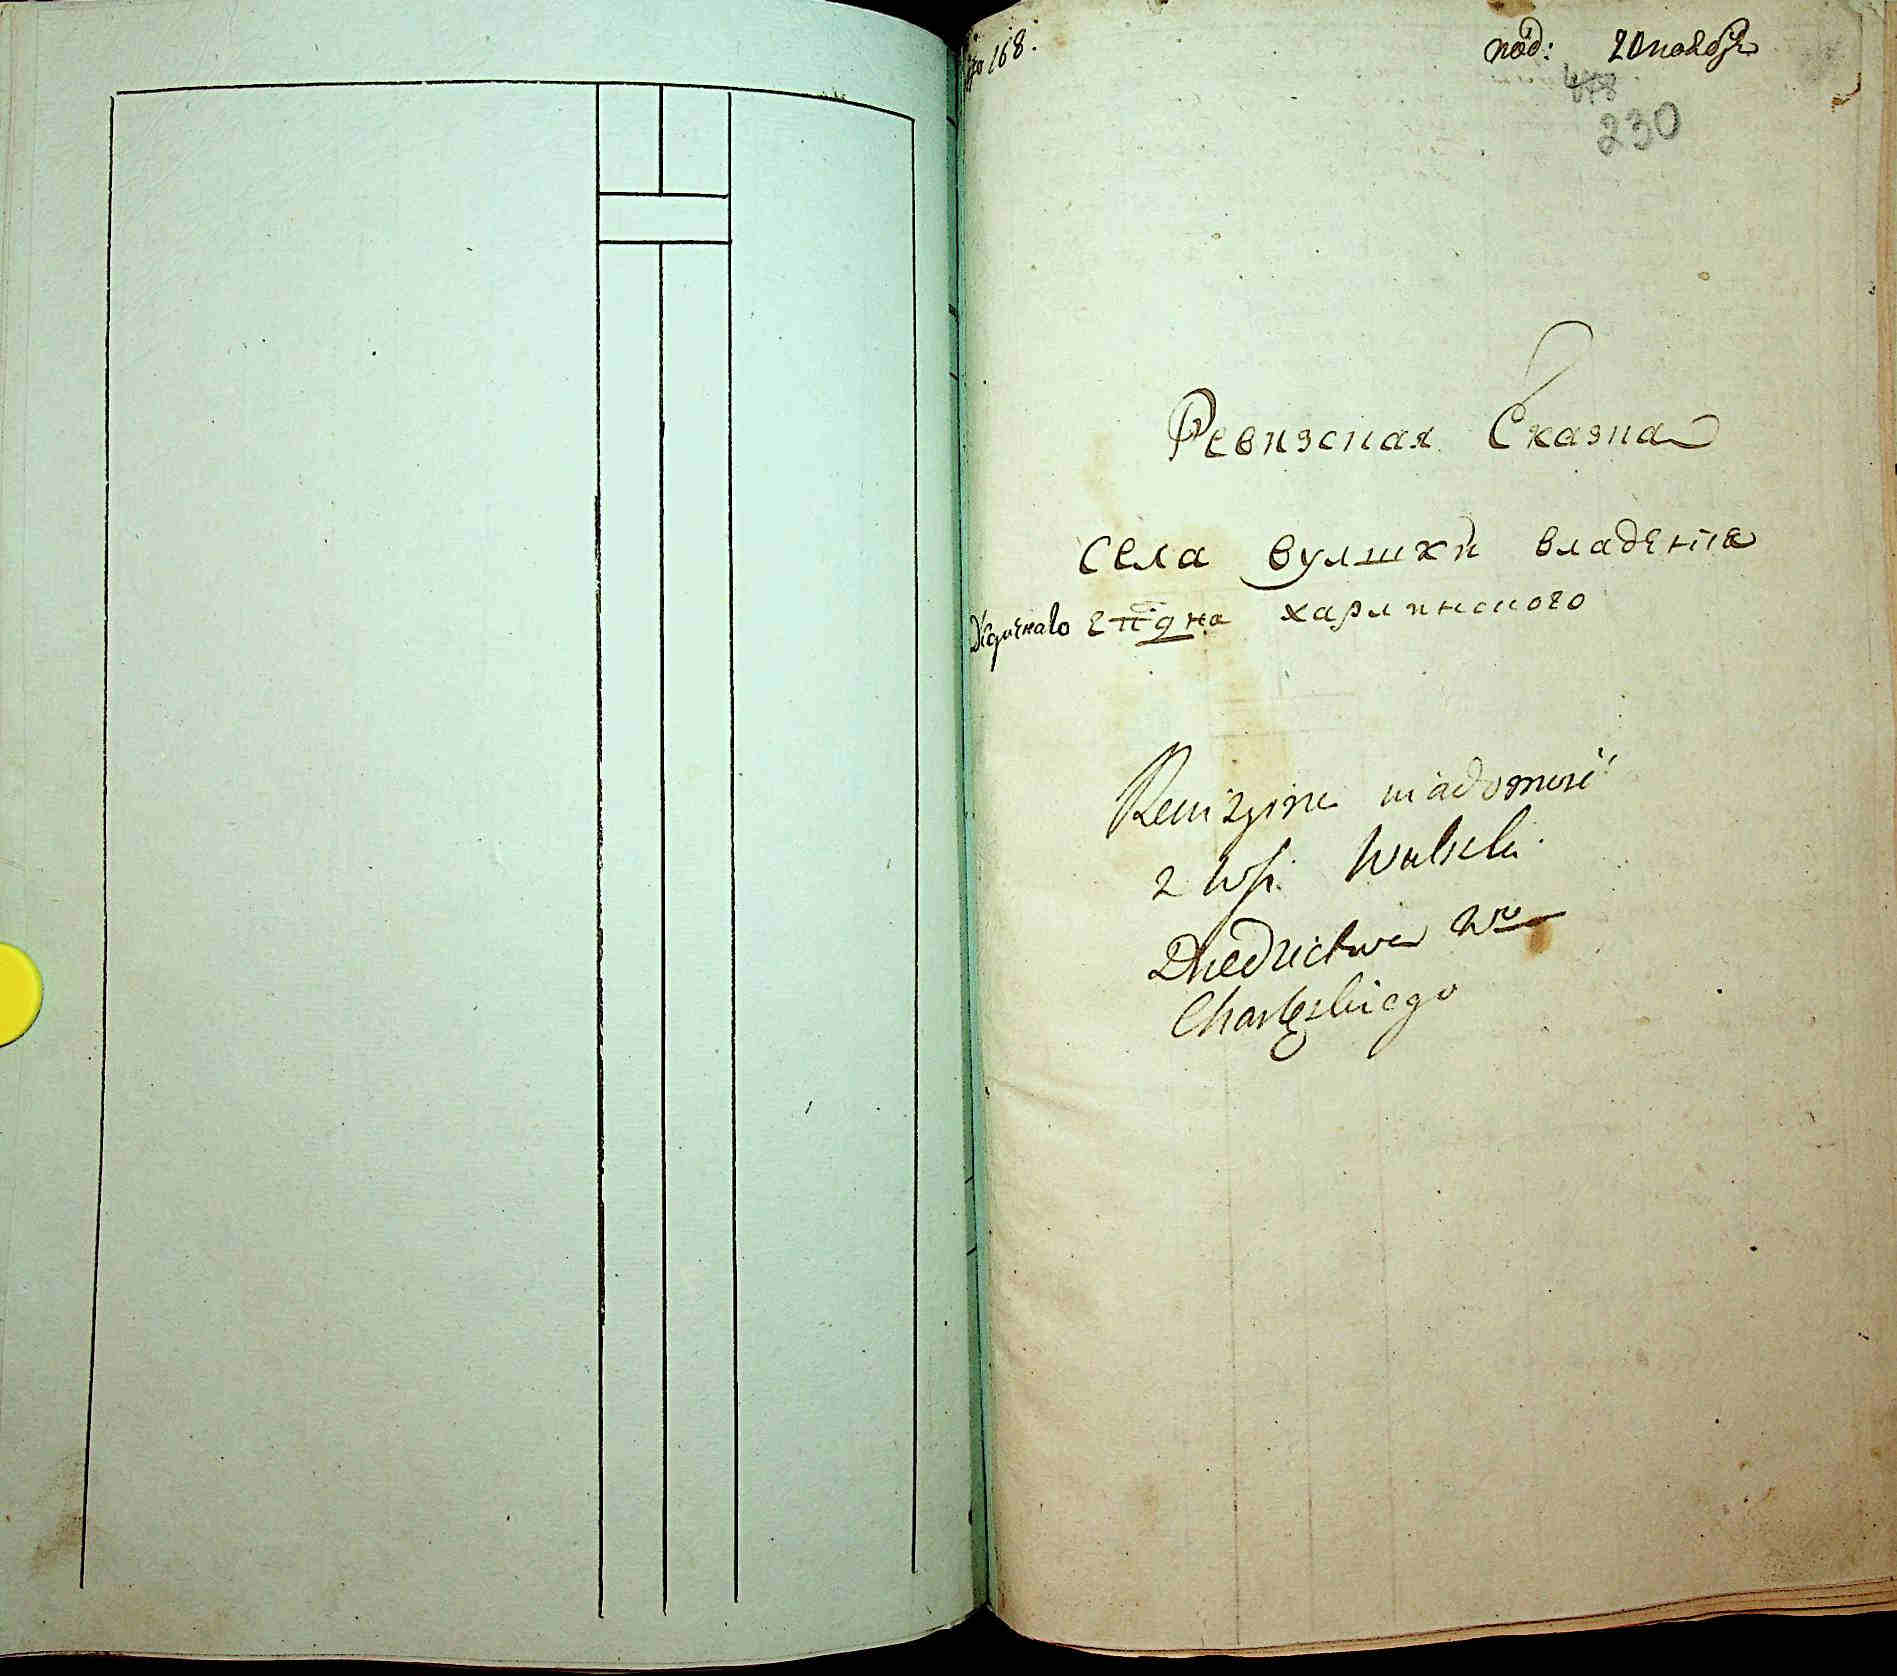 168.
под: 20 ноября
478
230
Ревизская Сказка
Села вулшки владения
Дедичнаго харлинского
Rewizyina wiadomość
z Wsi Wulszki
Dziedzictwa Wo
Charlęskiego